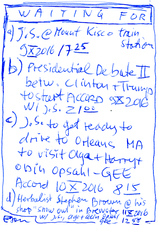 WAITING FOR
a) J.S. @ Mount Kisco train
station
9 X 2016 17 25
b) Presidential Debate II
betw. Clinton + Trump
to start Accord 9 X 2016
w/ J.S. 21 00
c) J.S. to get ready to
drive to Orleans MA
to visit Olga +
Opsahl-GEE
Accord 10 X 2016 8 15
d) Herbalist Stephen Brown @ his
shop "show out" in Brewster 11 X 2016
w/ J.S., Olga 12 55